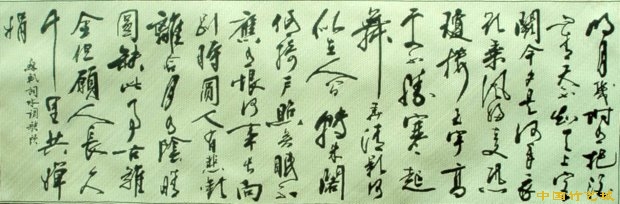 明月幾時有把酒
問青天不知天上宮
闕今夕是何年我
欲乘風歸去又恐
瓊樓玉宇高
處不勝寒起
舞弄清影何
似在人間轉朱閣
低綺戶照無眠不
應有恨何事長向
別時圓人有悲歡
離合月有陰晴
圓缺此事古難
全但願人長久
千里共嬋
娟
蘇軾詞水調歌頭